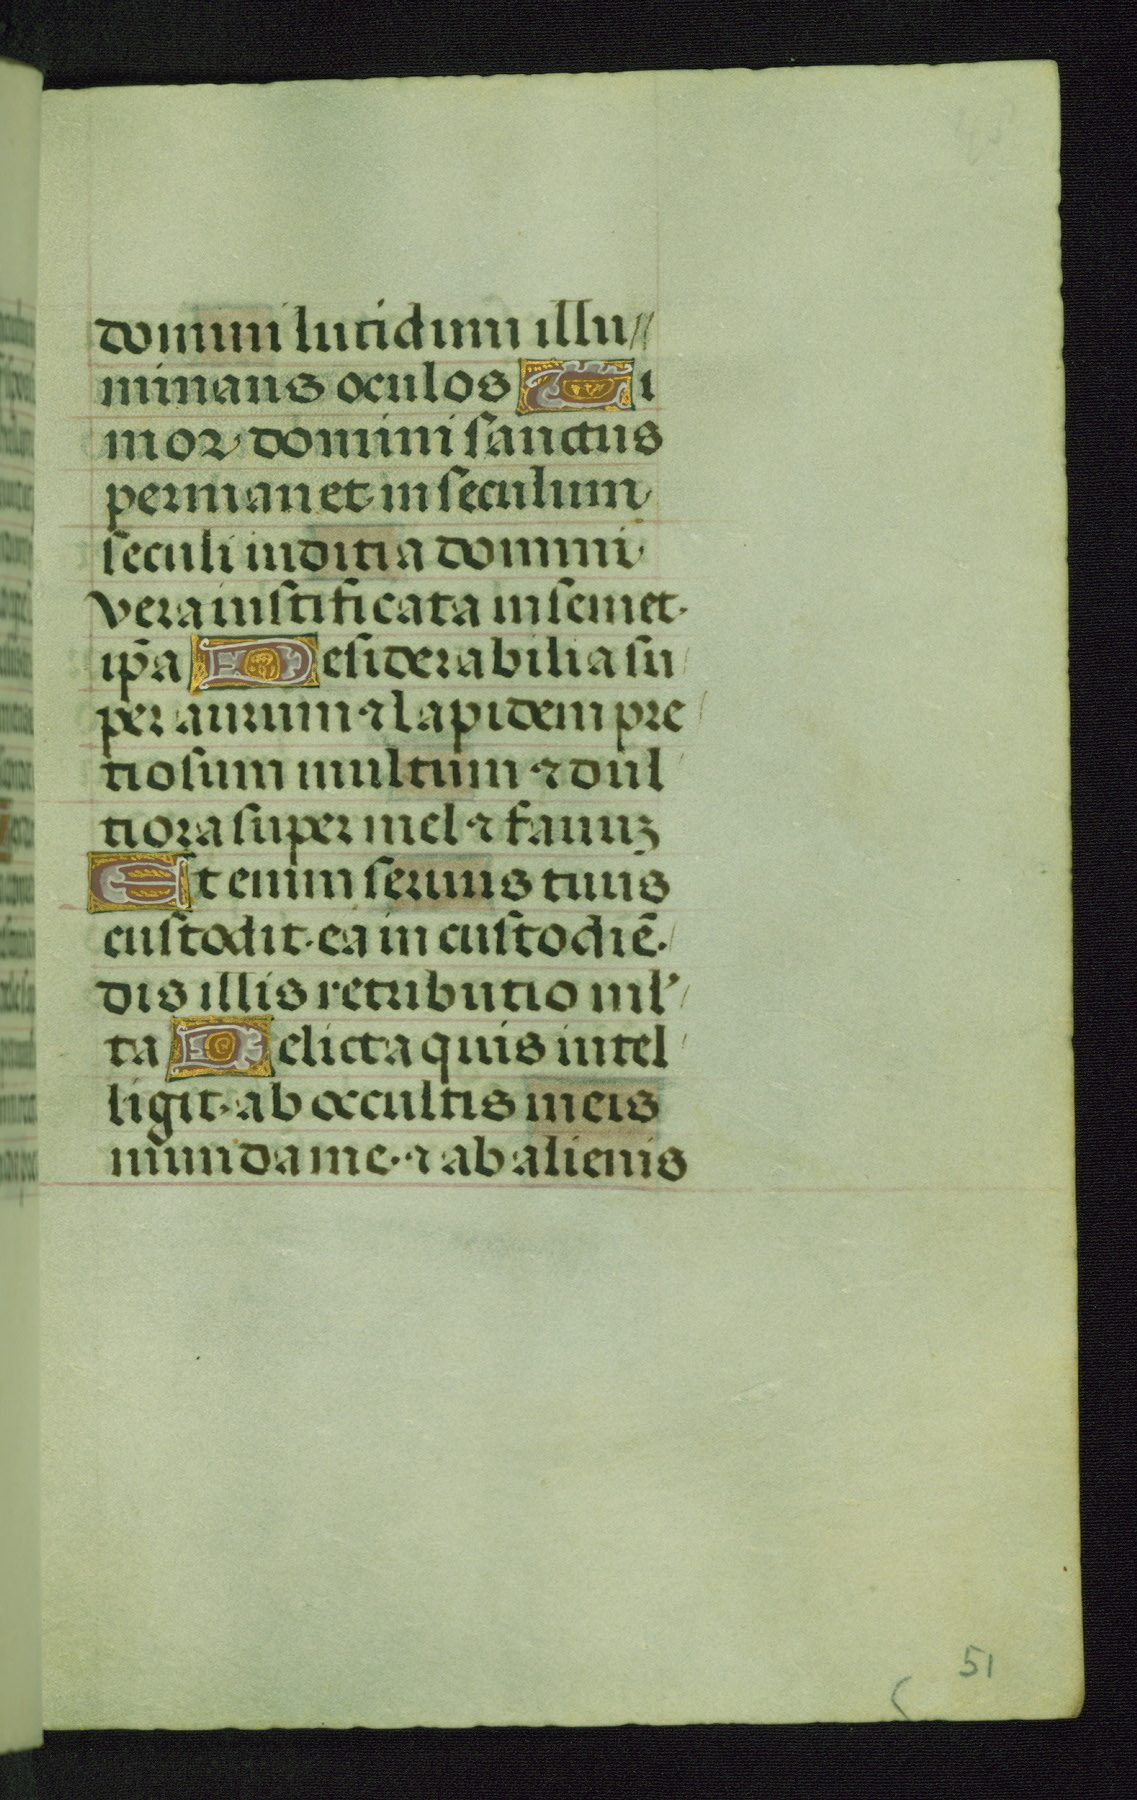 domini lucidum illu//
minans oculos Ti
mor domini sanctus
permanet in seculum
seculi iudicia domini
vera iustificata in semet
ip̄a Desiderabilia su
per aurum ⁊ lapidem pre
tiosum multum ⁊ dul
tiora super mel ⁊ fauuꝫ
Et enim seruus tuus
custodit ea in custodiē.
dis illis retributio ml'
ta Delicta quis intel
ligit ab occultis meis
munda me ⁊ ab alienis
51